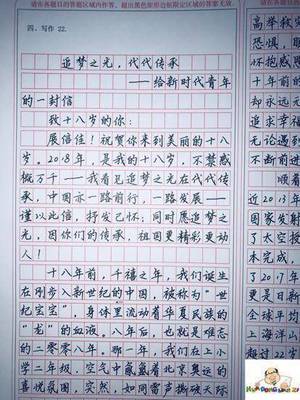 请在各题目的答题区域内作答，超出黑色矩形边框限定区域的答案无效。
四、写作 22.
追梦之光，代代传承
——给新时代青年
的一封信
致十八岁的你：
展信佳！祝贺你来到美丽的十八
岁。2018年，是我的十八岁，不禁感
概万千——我看见追梦之光在代代传
承，中国亦一路前行，一路发展——
谨以此信，抒发己怀；同时愿追梦之
光，因你们的传承，祖国更精彩更动
人！
十八年前，千禧之年，我们诞生
在刚步入新世纪的中国，被称为“世
纪宝宝”，身体里流动着华夏民族的
“龙”的血液。八年后，也就是难忘
的二零零八年。那一年，我们在上小
学二年级，空气中氤氲着北京奥运的
喜悦氛围，突然，如同雷声撕破天际
高举救
恐惧，取
怀抱感
十年前的
却永远
追求幸福
无论遇到
不断前进
顺着
近2013年
国家发
了太空
本完成，
了2017年
更是日新
全球年均
上海洋山
超过22